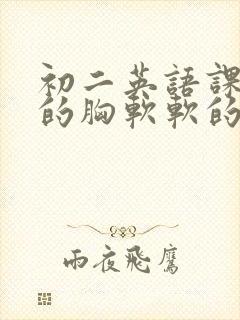 初二英語課
的胸軟軟的
雨夜飛鷹